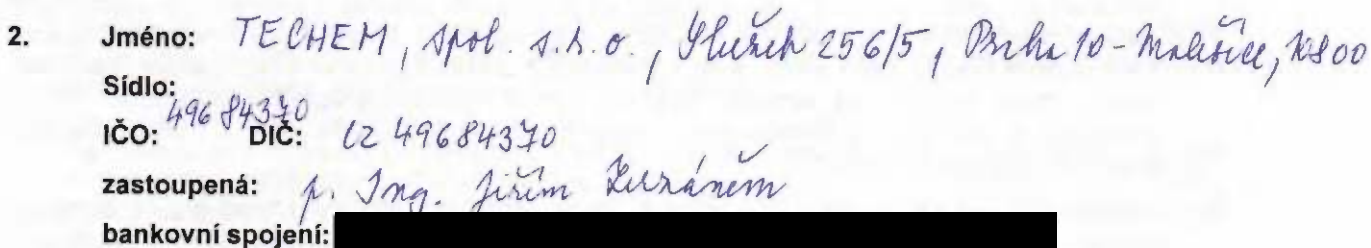 2. Jméno: TECHEM, spol. s.r.o., Služeb 256/5, Praha 10 - Malešice, 10800
Sídlo:
IČO: 49684370 DIČ: CZ 49684370
zastoupená: p. Ing. Jiřím
bankovní spojení: